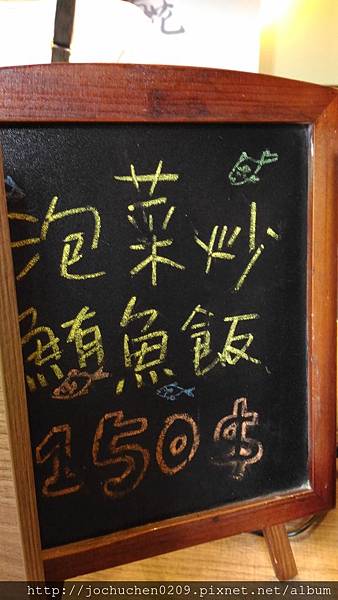 泡菜炒
鮪魚飯
150$
http://jochuchen0209.pixnet.net/album